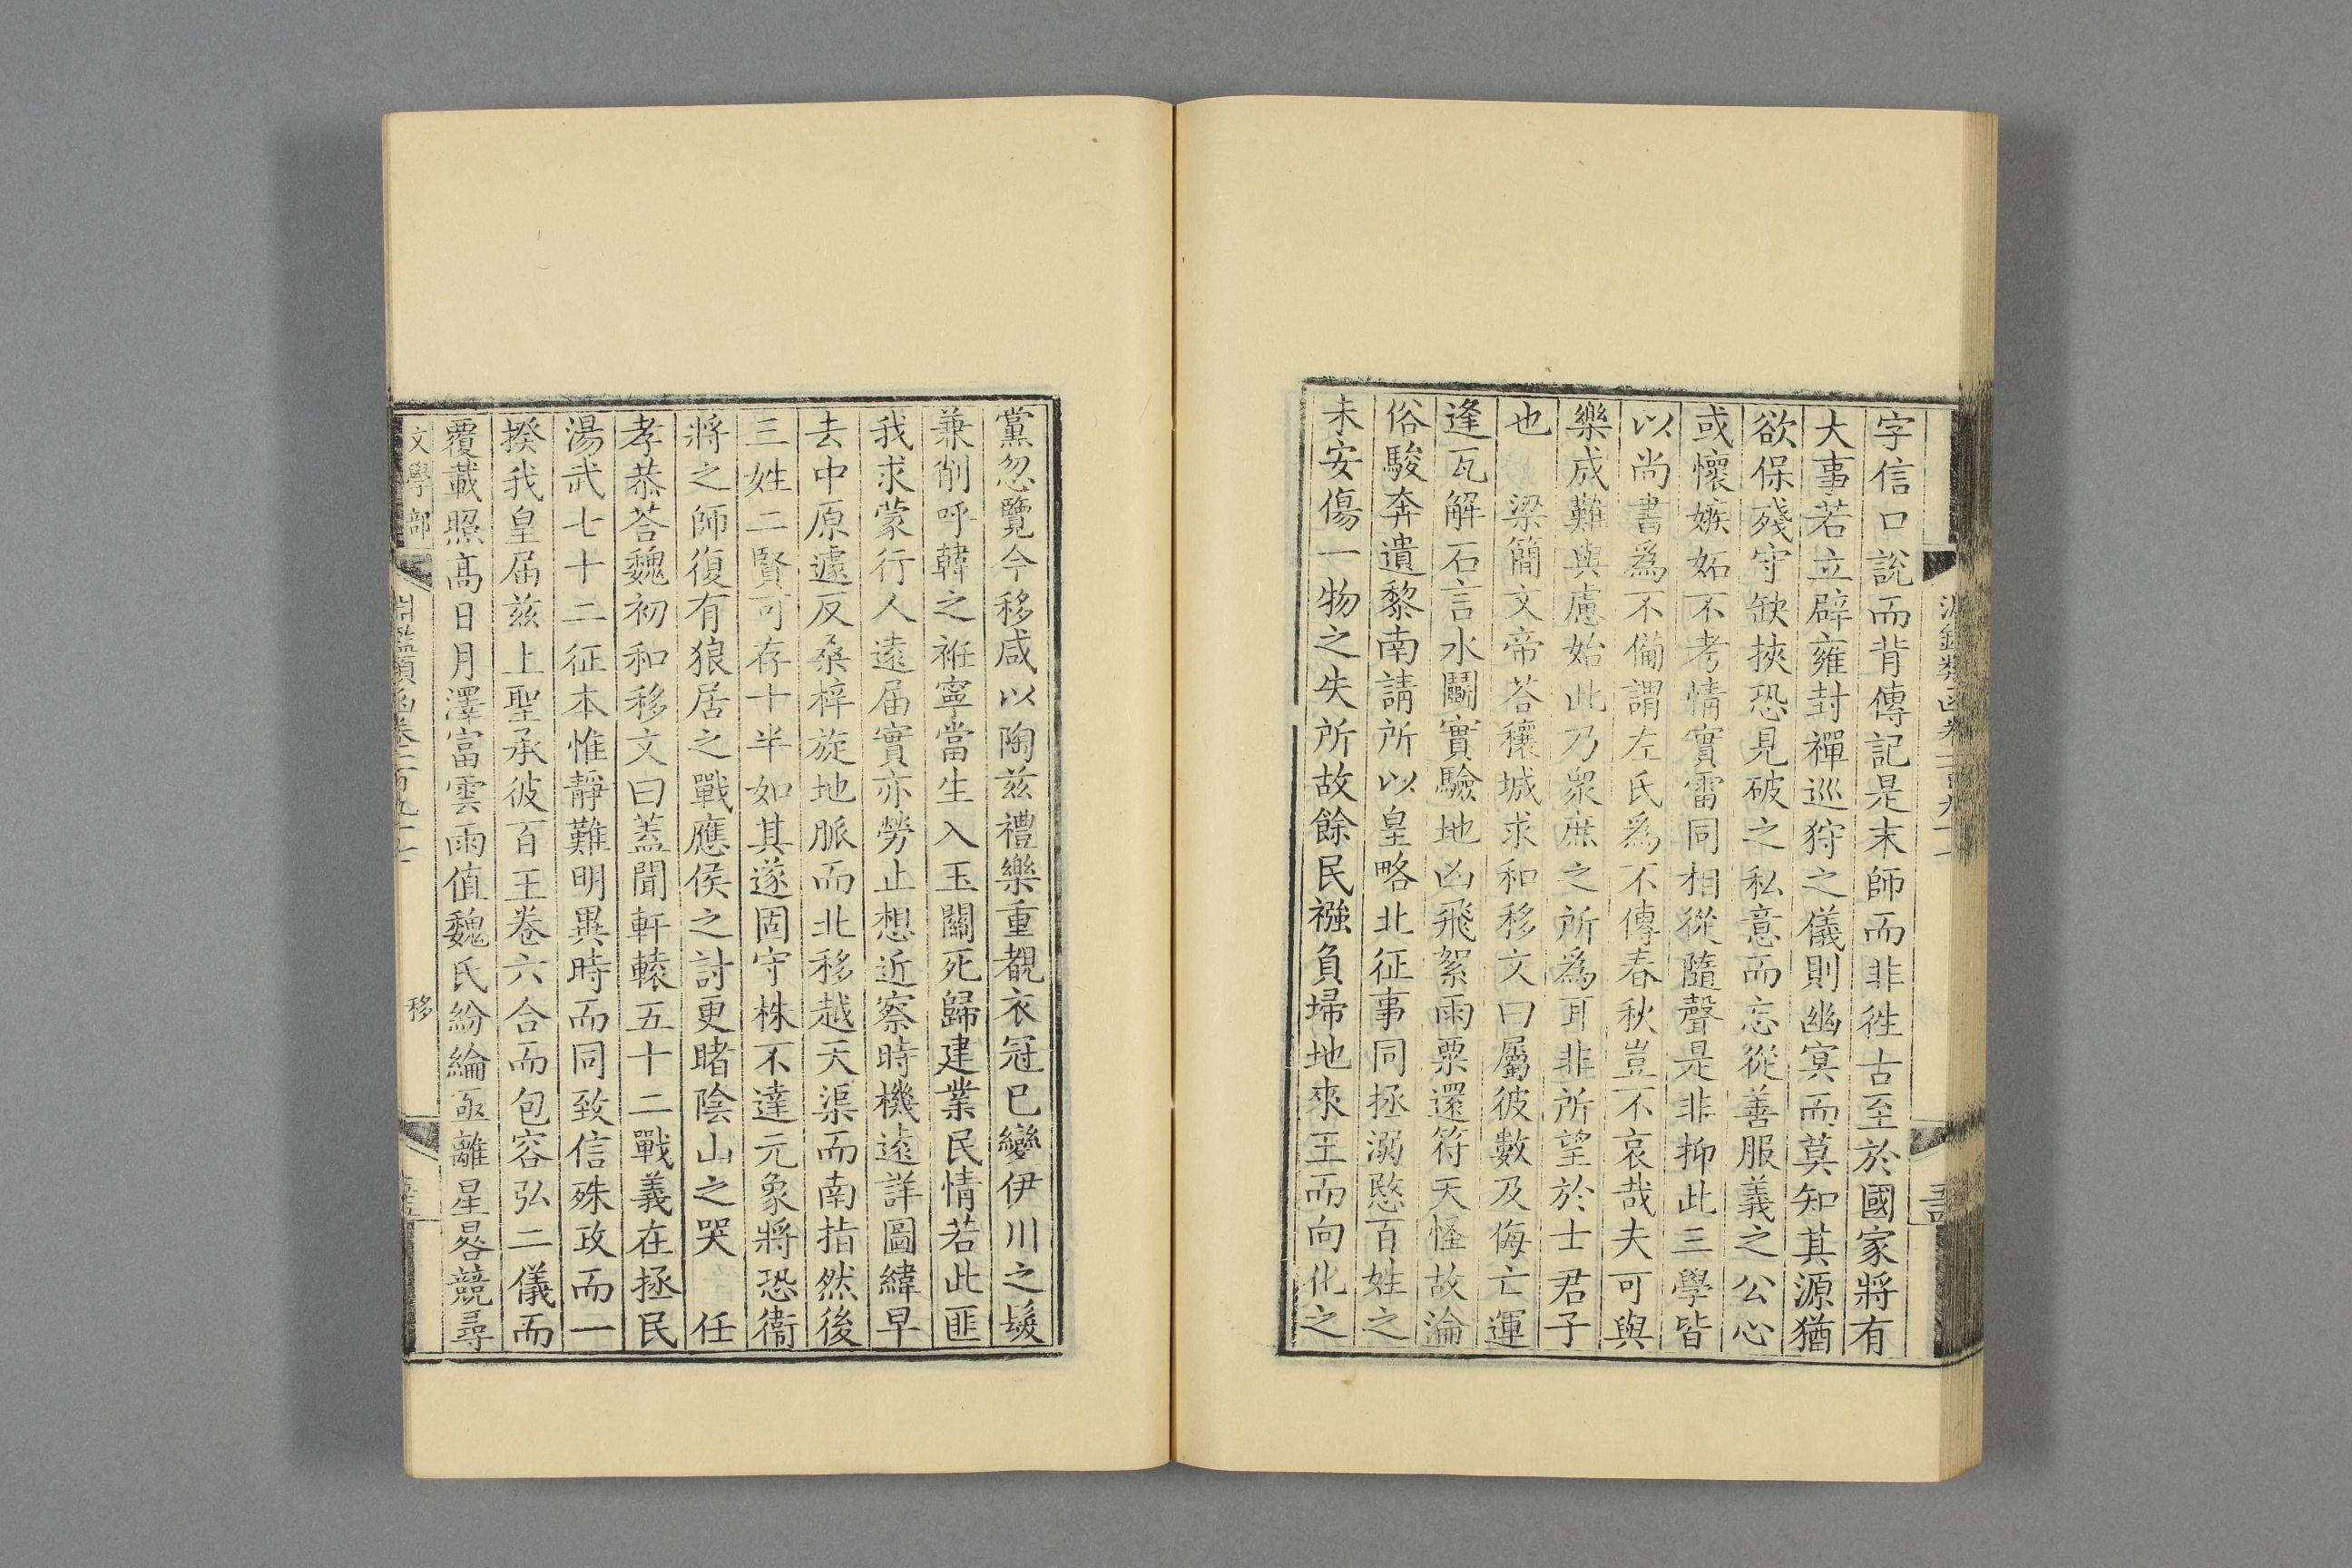 字信口說而背傳記是末師而非徃古至於國家將有
大事若立辟雍封禪巡狩之儀則幽冥而莫知其源猶
欲保殘守缺挾恐見破之私意而忘從善服義之公心
或懷嫉妬不考情實雷同相從隨聲是非抑此三學皆
以尚書爲不備謂左氏爲不傳春秋豈不哀哉夫可與
樂成難與慮始此乃衆庶之所爲耳非所望於士君子
也　梁簡文帝荅穰城求和移文曰屬彼數及侮亡運
逢瓦解石言水鬭實驗地凶飛絮雨粟還符天怪故淪
俗駿奔遺黎南請所以皇略北征事同拯溺愍百姓之
未安傷一物之失所故餘民襁負埽地來王而向化之
黨忽覽今移咸以陶兹禮樂重覩衣冠已變伊川之髮
兼削呼韓之袵寧當生入玉關死歸建業民情若此匪
我求蒙行人遠届實亦勞止想近察時機遠詳圖緯早
去中原遽反桑梓旋地脈而北移越天渠而南指然後
三姓二賢可存十半如其遂固守株不達元象將恐衞
將之師復有狼居之戰應侯之討更睹陰山之哭　任
孝恭荅魏初和移文曰蓋聞軒轅五十二戰義在拯民
湯武七十二征本惟靜難明異時而同致信殊政而一
揆我皇届兹上聖承彼百王卷六合而包容弘二儀而
覆載照高日月澤富雲雨值魏氏紛綸亟離星晷競尋
文學部
淵鑑類函卷二百九十七
移